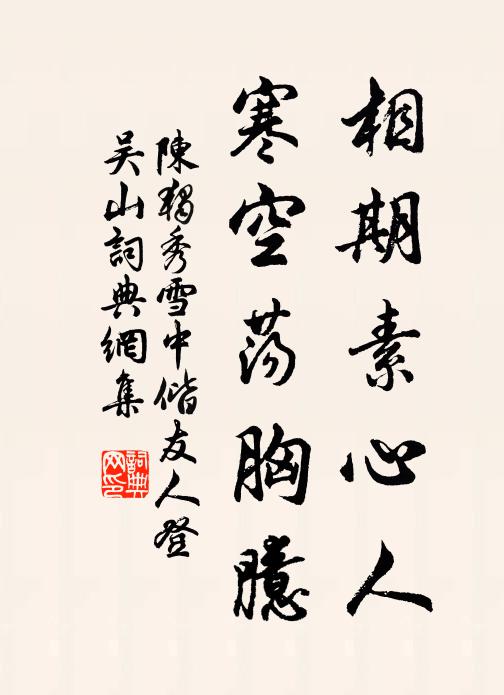 相期素心人
寒空荡胸臆
陳獨秀雪中偕友人登
吴山詞典網集
詞典
网印